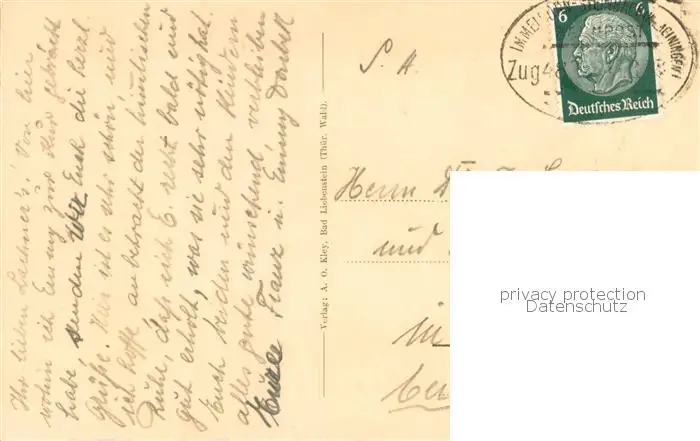 Ihr lieben Lachner's! Von hier
wohin ich Emmy zur Kur gebracht
habe, senden wir Euch die herzl.
Grüße. Hier ist es sehr schön und
ich hoffe anbetracht der himmlischen
Ruhe, daß sich E. recht bald und
gut erholt, was sie sehr nötig hat.
Euch beiden und den Kindern
alles gute wünschend verbleiben
Franz u. Emmy
Verlag: A. O. Kley, Bad Liebenstein (Thür. Wald).
S. H.
Herrn
und
in
6 6
Deutsches Reich
Zug
privacy protection
Datenschutz